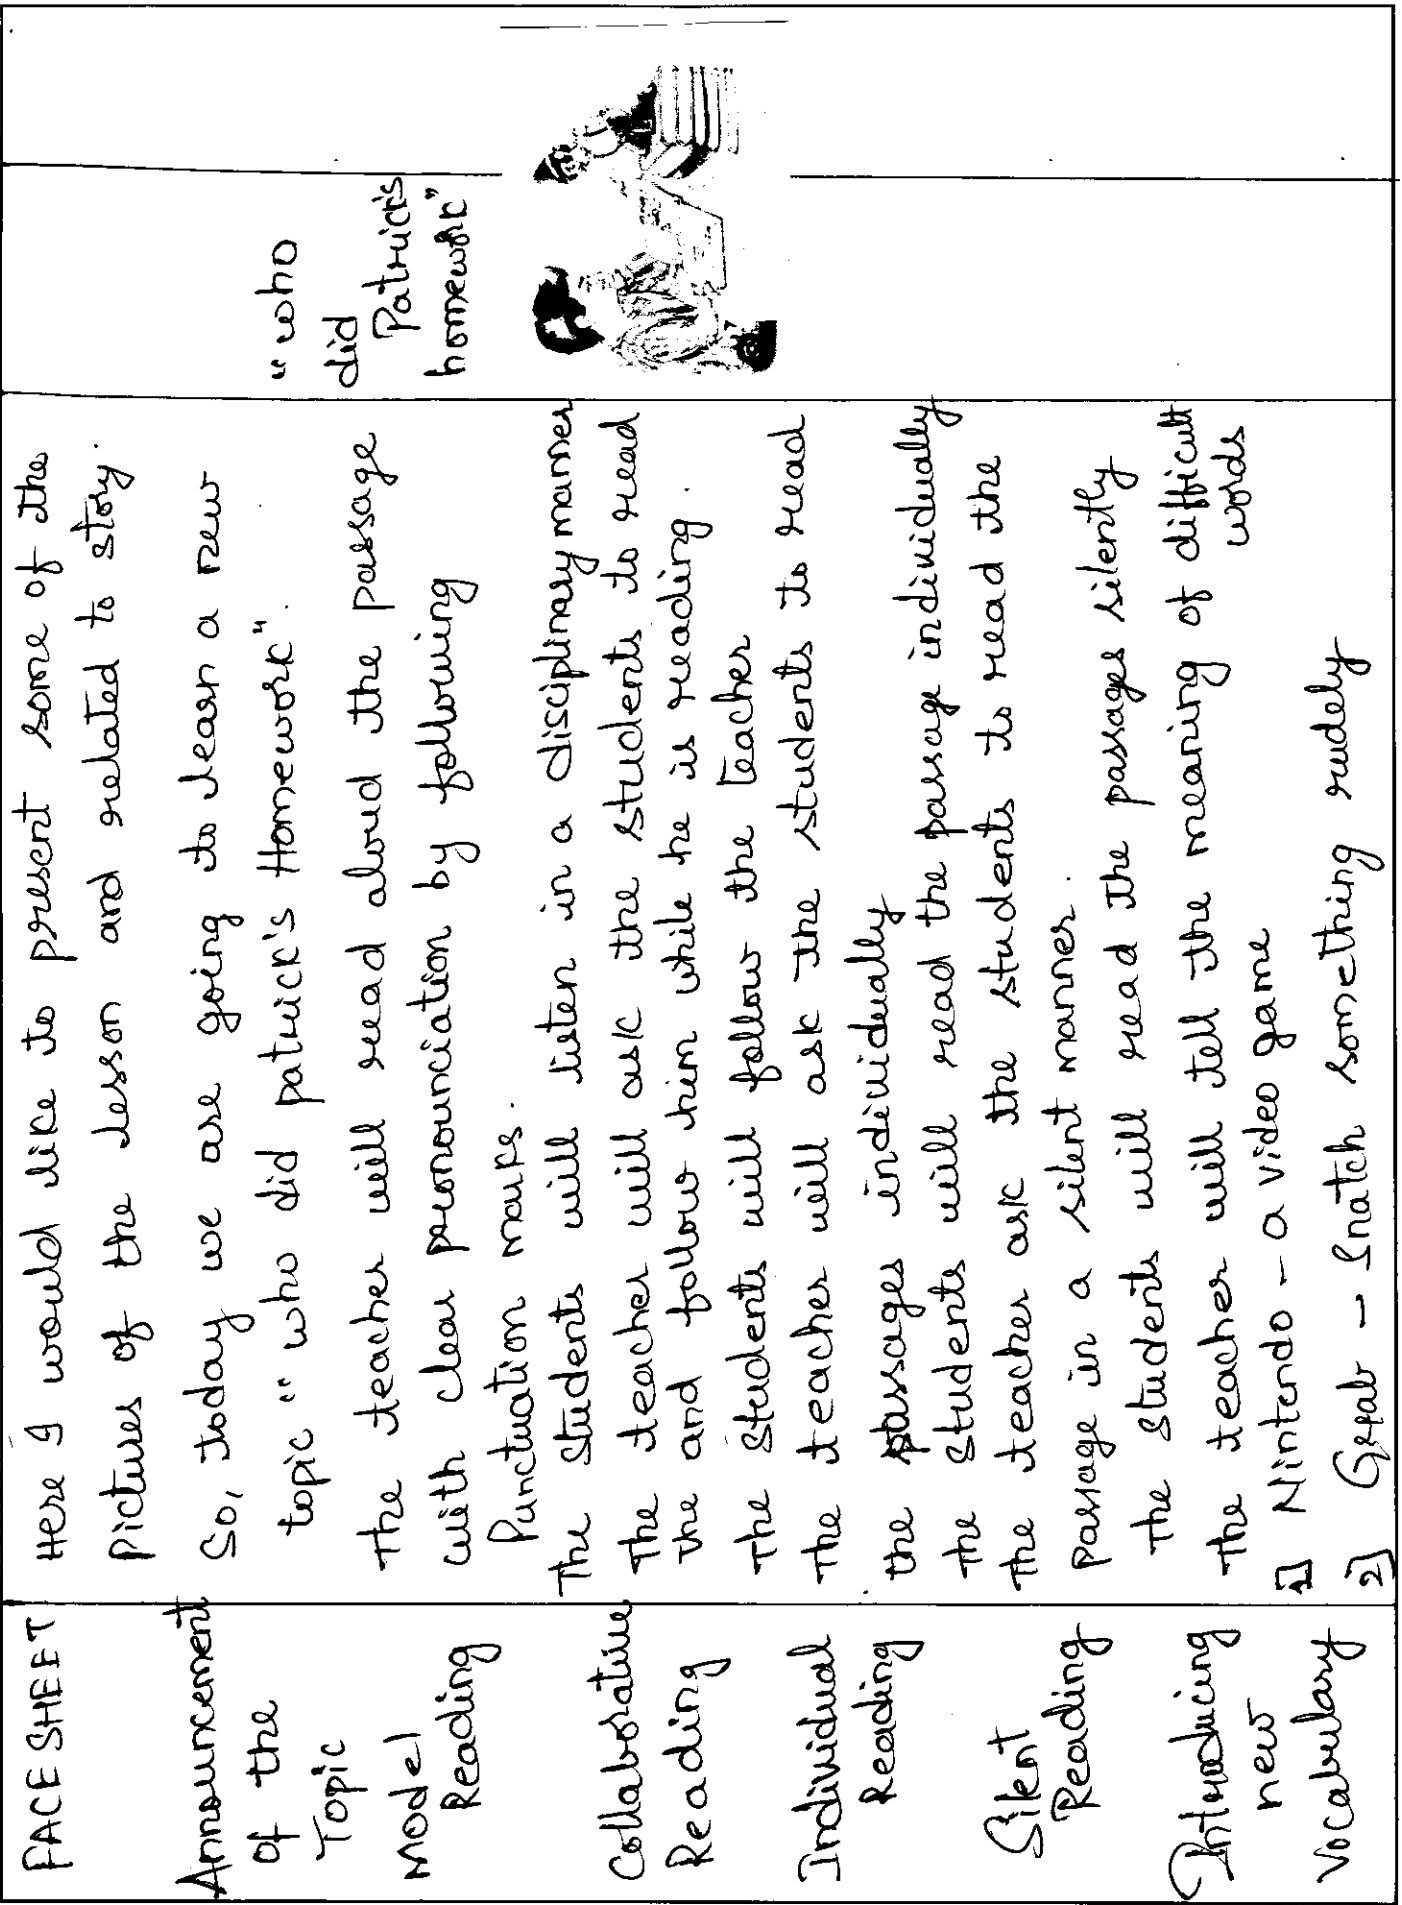 FACE SHEET
Here I would like to present some of the
pictures of the lesson and related to story.
Announcement
of the
Topic
So, today we are going to learn a new
topic "who did patrick's Homework".
"who
did
Patrick's
homework"
Model
Reading
The teacher will read aloud the passage
with clear pronounciation by following
Punctuation marks.
The students will listen in a disciplinary manner
Collaborative
Reading
The teacher will ask the students to read
the and follow him while he is reading.
The students will follow the teacher
Individual
Reading
The teacher will ask the students to read
the passages individually
The students will read the passage individually
Silent
Reading
The teacher ask the students to read the
passage in a silent manner.
The students will read the passages silently
Introducing
new
Vocabulary
The teacher will tell the meaning of difficult
words
1] Nintendo - a video game
2] Grab - Snatch something rudely